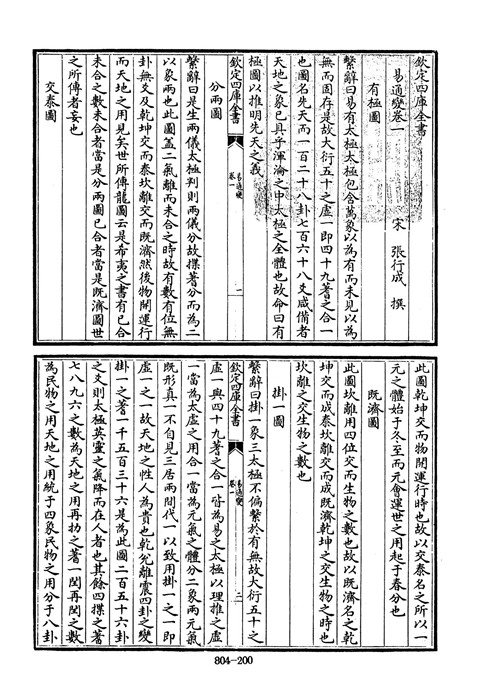 欽定四庫全書
易通變卷一
宋 張行成 撰
有極圖
繫辭曰易有太極太極包含萬象以為有而未見以為
無而固存是故大衍五十之虛一即四十九蓍之合一
也圖名先天而一百二十八卦七百六十八爻咸備者
天地之象已具乎渾淪之中太極之全體也故命曰有
極圖以推明先天之義
分兩圖
欽定四庫全書
易通變
卷一
一
繫辭曰是生兩儀太極判則兩儀分故揲蓍分而為二
以象兩也此圖蓋二氣離而未合之時故有數有位無
卦無爻及乾坤交而泰坎離交而既濟然後物開運行
而天地之用見矣世所傳龍圖云是希夷之書有已合
未合之數未合者當是分兩圖已合者當是既濟圖世
之所傳者妄也
交泰圖
此圖乾坤交而物開運行時也故以交泰名之所以一
元之體始于冬至而元會運世之用起于春分也
既濟圖
此圖坎離用四位交而生物之數也故以既濟名之乾
坤交而成泰坎離交而成既濟乾坤之交生物之時也
坎離之交生物之數也
掛一圖
繫辭曰掛一象三太極不偏繫於有無故大衍五十之
欽定四庫全書
易通變
卷一
二
虛一與四十九蓍之合一皆為易之太極以理推之虛
一當為太虛之用合一當為元氣之體分二象兩元氣
既形真一不自見三居兩間代一以致用掛一之一即
虛一之一故天地之性人為貴也乾兌離震四卦之變
掛一之蓍一千五百三十六是為此圖二百五十六卦
之爻則太極英靈之氣降而在人者也其餘四揲之蓍
七八九六之數為天地之用再扐之蓍一閏再閏之數
為民物之用天地之用統于四象民物之用分于八卦
804-200